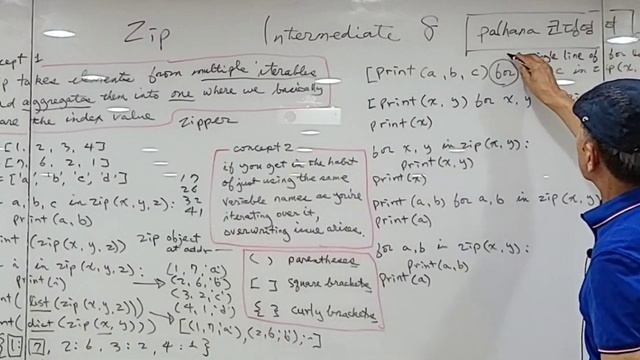 Zip Intermediate 8 palhana 코딩영
concept 1
zip takes elements from multiple iterables
and aggregates them into one where we basically
are the index value
zipper
[1, 2, 3, 4]
[7, 6, 2, 1]
['a', 'b', 'c', 'd']
a, b, c in zip(x, y, z):
print(a, b)
17
26
32
41
print(zip(x, y, z)) zip object
at addr
i in zip(x, y, z):
print(i)
(1, 7, 'a')
(2, 6, 'b')
(3, 2, 'c')
(4, 1, 'd')
list(zip(x, y, z)))
dict(zip(x, y)))
[(1, 7, 'a'), (2, 6, 'b'), ~]
{1: 7, 2: 6, 3: 2, 4: 1}
concept 2
if you get in the habit
of just using the same
variable names as you're
iterating over it,
overwriting issue arises.
( ) parentheses
[ ] square brackets
{ } curly brackets
single line of for
[print(a, b, c) for c in
[print(x, y) for x, y
print(x)
for x, y in zip(x, y):
print(x, y)
print(x)
print(a, b) for a, b in zip(x, y)
print(a)
for a, b in zip(x, y):
print(a, b)
print(a)